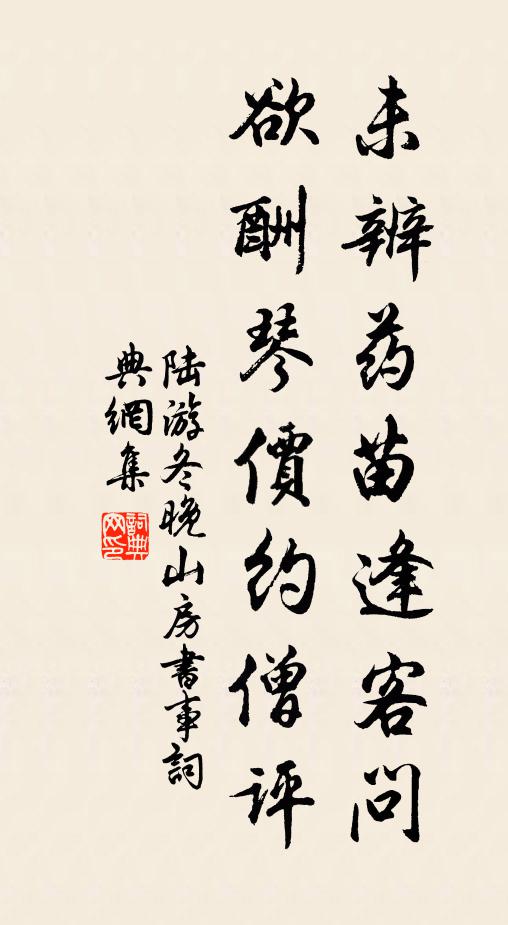 未辨药苗逢客问
欲酬琴價約僧评
陆游冬晚山房書事詞
典網集
詞典
网印